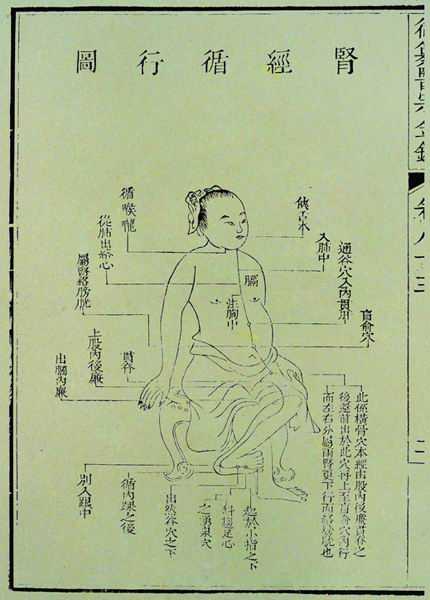 御纂醫宗金鑑
卷八十三
腎經循行圖
挾舌本
入肺中
通谷穴入內貫肝
肓俞穴
循喉嚨
從肺出絡心
屬腎絡膀胱
膈
注胸中
貫脊
上股內後廉
出膕內廉
此係橫骨穴本經由股內後廉貫脊之
後還前出於此穴再上至肓俞穴內行
而左右分屬兩腎更下行而絡膀胱也
起於小指之下
斜趨足心
之湧泉穴
出然谷穴之下
循內踝之後
別入跟中